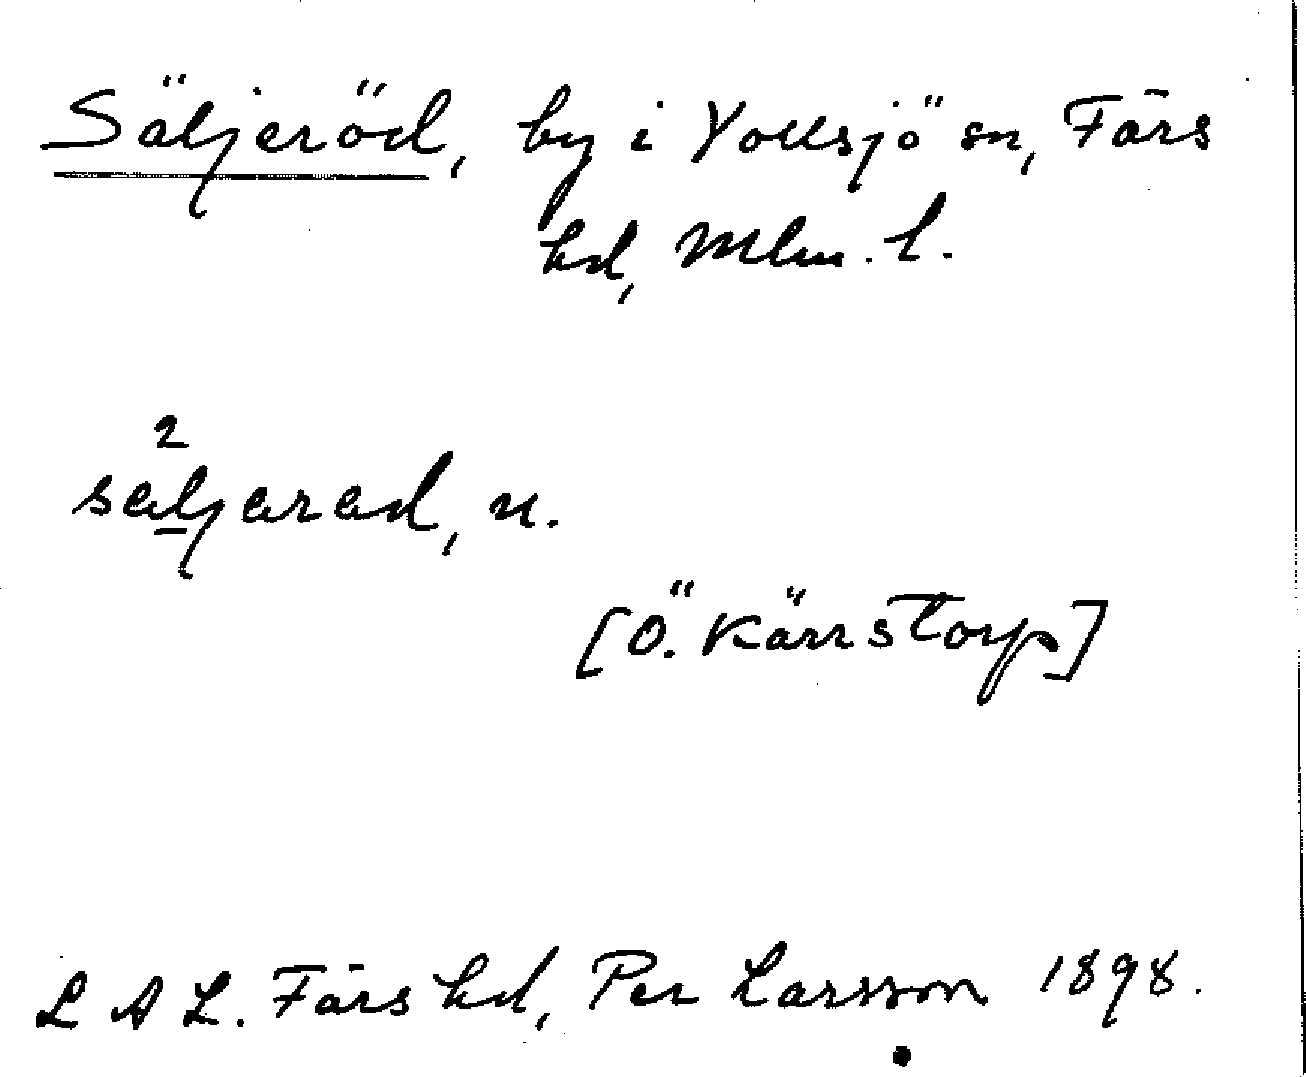 Säljeröd, by i Vollsjö sn, Färs
hd, Mlm. l.
2
sæljarad, n.
[Ö. Kärrstorp]
L A L. Färs hd, Per Larsson 1898.